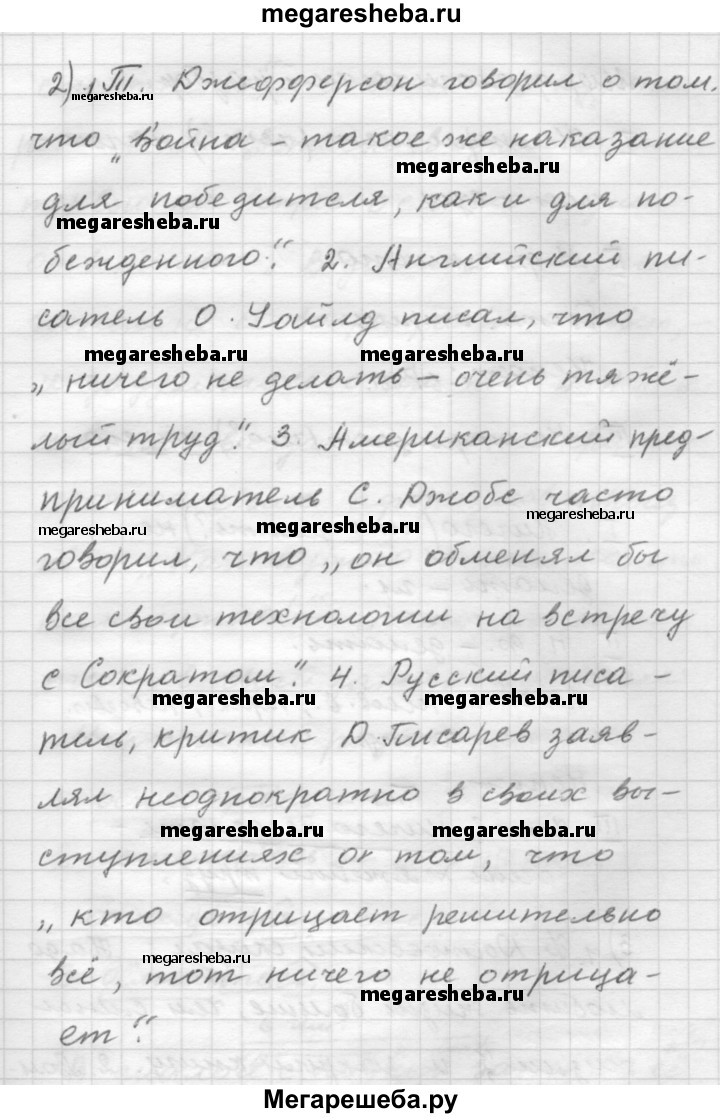 megaresheba.ru
2) 1 Т. Джефферсон говорил о том,
megaresheba.ru
что „Война – такое же наказание
megaresheba.ru
для победителя, как и для по-
megaresheba.ru
бежденного“. 2. Английский пи-
сатель О. Уайлд писал, что
megaresheba.ru megaresheba.ru
„ничего не делать – очень тяжё-
лый труд“. 3. Американский пред-
приниматель С. Джобс часто
megaresheba.ru megaresheba.ru megaresheba.ru
говорил, что „он обменял бы
все свои технологии на встречу
с Сократом“. 4. Русский писа-
megaresheba.ru megaresheba.ru
тель, критик Д. Писарев заяв-
лял неоднократно в своих вы-
megaresheba.ru megaresheba.ru
ступлениях о том, что
„кто отрицает решительно
megaresheba.ru
всё, тот ничего не отрица-
megaresheba.ru
ет“.
Мегарешеба.ру